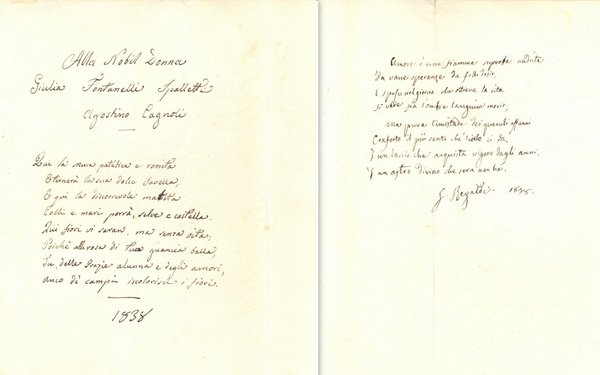 Alla Nobil Donna
Giulia Fontanelli Spalletti
Agostino Cagnoli
Qui la musa patetica e romita
Eternerà la sua dolce favella,
E qui la discorrevole matita
Colli e mari porrà, selve e castella.
Qui fiori vi saran, ma senza vita,
Poichè alla rosa di tua guancia bella,
Tu delle Grazie alunna e degli amori,
anco di campin incolorisci i fiori.
1838
Amore è una fiamma superba nudrita
Da vane speranze da folli desir,
È spesso nel giovane che sfiora la vita
Si vive fra l'ombre languire morir,
Ma pura Amistade dei guanti affanni
Conforto il più santo che il cielo ci dà
È un laccio che acquista vigore dagli anni,
È un astro divino che sera non ha.
G Regaldi 1838.